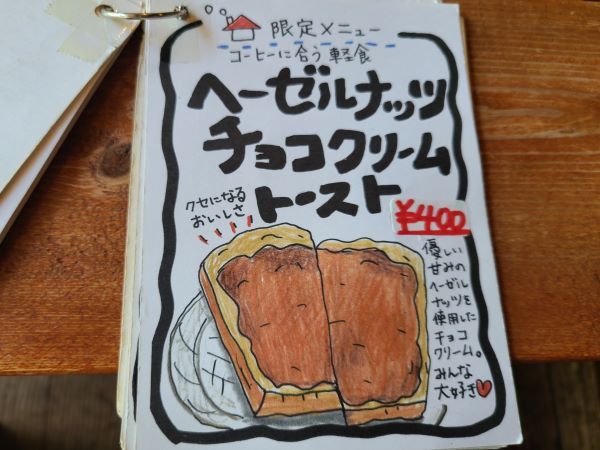 限定メニュー
コーヒーに合う軽食
ヘーゼルナッツ
チョコクリーム
トースト
クセになる
おいしさ
¥400
優しい
甘みの
ヘーゼル
ナッツを
使用した
チョコ
クリーム。
みんな
大好き♥